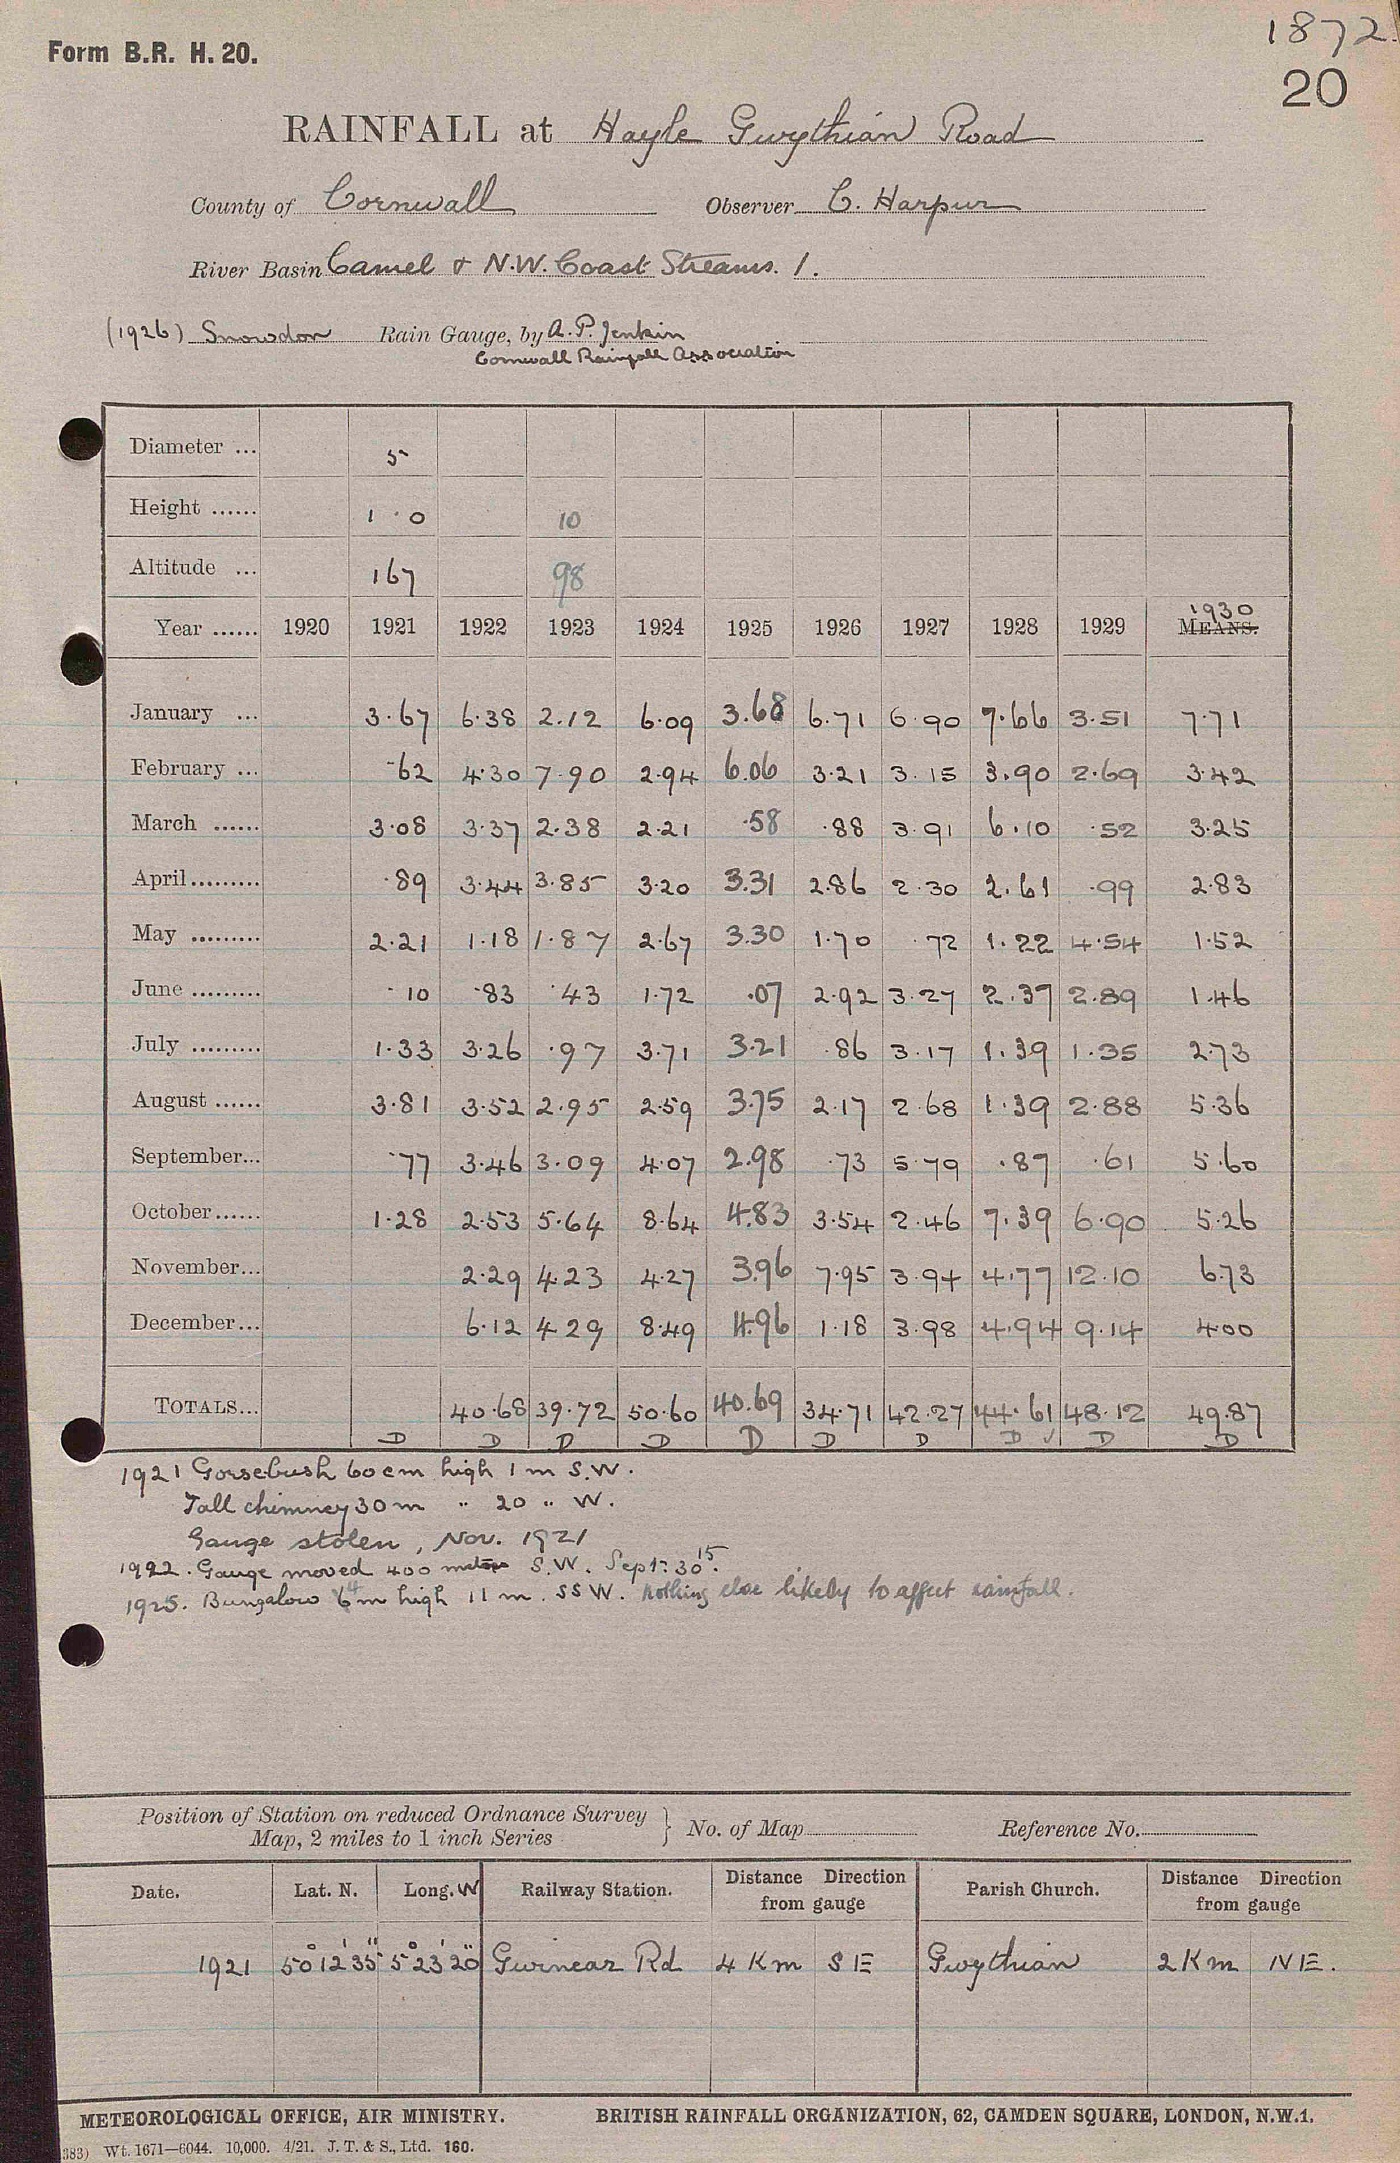 1872.
Form B.R. H. 20.
20
RAINFALL at Hayle Gwythian Road
County of Cornwall Observer C. Harpur
River Basin Camel & N.W. Coast Streams. 1.
(1926) Snowdon Rain Gauge, by A. P. Jenkin
Cornwall Rainfall Association
Diameter ... 5
Height ...... 1 · 0 10
Altitude ... 167 98
1930
Year ...... 1920 1921 1922 1923 1924 1925 1926 1927 1928 1929 MEANS.
January ... 3·67 6·38 2.12 6·09 3.68 6·71 6·90 7·66 3·51 7·71
February ... ·62 4·30 7·90 2·94 6.06 3·21 3·15 3.90 2·69 3·42
March ...... 3·08 3·37 2·38 2·21 ·58 ·88 3·91 6·10 ·52 3·25
April ......... ·89 3·44 3·85 3·20 3.31 2·86 2·30 2.61 ·99 2·83
May ......... 2·21 1·18 1·87 2·67 3.30 1·70 ·72 1.22 4·54 1·52
June ......... ·10 ·83 ·43 1·72 .07 2·92 3·27 2·37 2·89 1·46
July ......... 1·33 3·26 ·97 3·71 3·21 ·86 3·17 1·39 1·35 2·73
August ...... 3·81 3·52 2·95 2·59 3.75 2·17 2·68 1·39 2·88 5·36
September... ·77 3·46 3·09 4·07 2.98 ·73 5·79 ·87 ·61 5·60
October...... 1·28 2·53 5·64 8·64 4.83 3·54 2·46 7·39 6·90 5·26
November... 2·29 4·23 4·27 3.96 7·95 3·94 4·77 12·10 6·73
December... 6·12 4·29 8·49 4.96 1·18 3·98 4·94 9·14 4·00
TOTALS... 40·68 39·72 50·60 40.69 34·71 42·27 44·61 48·12 49·87
D D D D D D D D √ D D
1921 Gorsebush 60 cm high 1 m S.W.
Tall chimney 30 m " 20 " W.
Gauge stolen, Nov. 1921
1922. Gauge moved 400 metres S.W. Sept: 30 15.
1925. Bungalow 4 m high 11 m. SSW. nothing else likely to affect rainfall.
Position of Station on reduced Ordnance Survey
Map, 2 miles to 1 inch Series } No. of Map Reference No.
Date. Lat. N. Long. W Railway Station. Distance Direction from gauge Parish Church. Distance Direction from gauge
1921 50° 12' 35" 5° 23' 20" Gwinear Rd 4 Km SE Gwythian 2 Km NE.
METEOROLOGICAL OFFICE, AIR MINISTRY. BRITISH RAINFALL ORGANIZATION, 62, CAMDEN SQUARE, LONDON, N.W.1.
383) Wt. 1671—6044. 10,000. 4/21. J. T. & S., Ltd. 160.